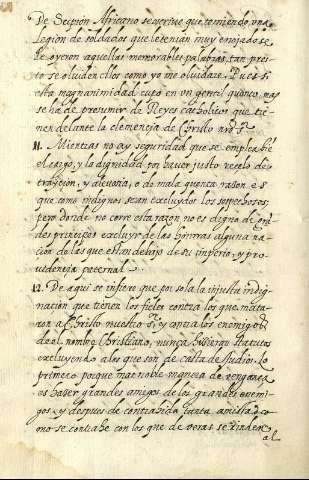 De Scipion Africano se escrive que teniendo una
legion de soldados que le tenian muy enojado se
le oyeron aquellas memorables palabras, tan pres
to se olviden ellos como yo me olvidaré. Pues si
esta magnanimidad cupo en un gentil quanto mas
se ha de presumir de Reyes catholicos que tie
nen delante la clemencia de Christo nro Sr.
11. Mientras no ay seguridad que se emplee bie
el cargo, y la dignidad por haver justo recelo de
traycion, y alevosia, o de mala quenta razon es
que como indignos sean excluydos los sospechosos,
pero donde no corre esta razon no es digno de gran
des principes excluyr de las honrras alguna na
cion de las que estan debajo de su imperio, y pro
videncia paternal.
12. De aqui se infiere que por sola la injulta indig
nación que tienen los fieles contra los que mata
ron a Christo nuestro Sr. y contra los enemigos
del nombre Christiano, nunca hizieron statutos
excluyendo a los que son de casta de Judios. Lo
primero porque mas noble manera de venganza
es haver grandes amigos de los grandes enemi
gos, y despues de contrahida tanta amistad co
mo se contrahe con los que de veras se rinden
al